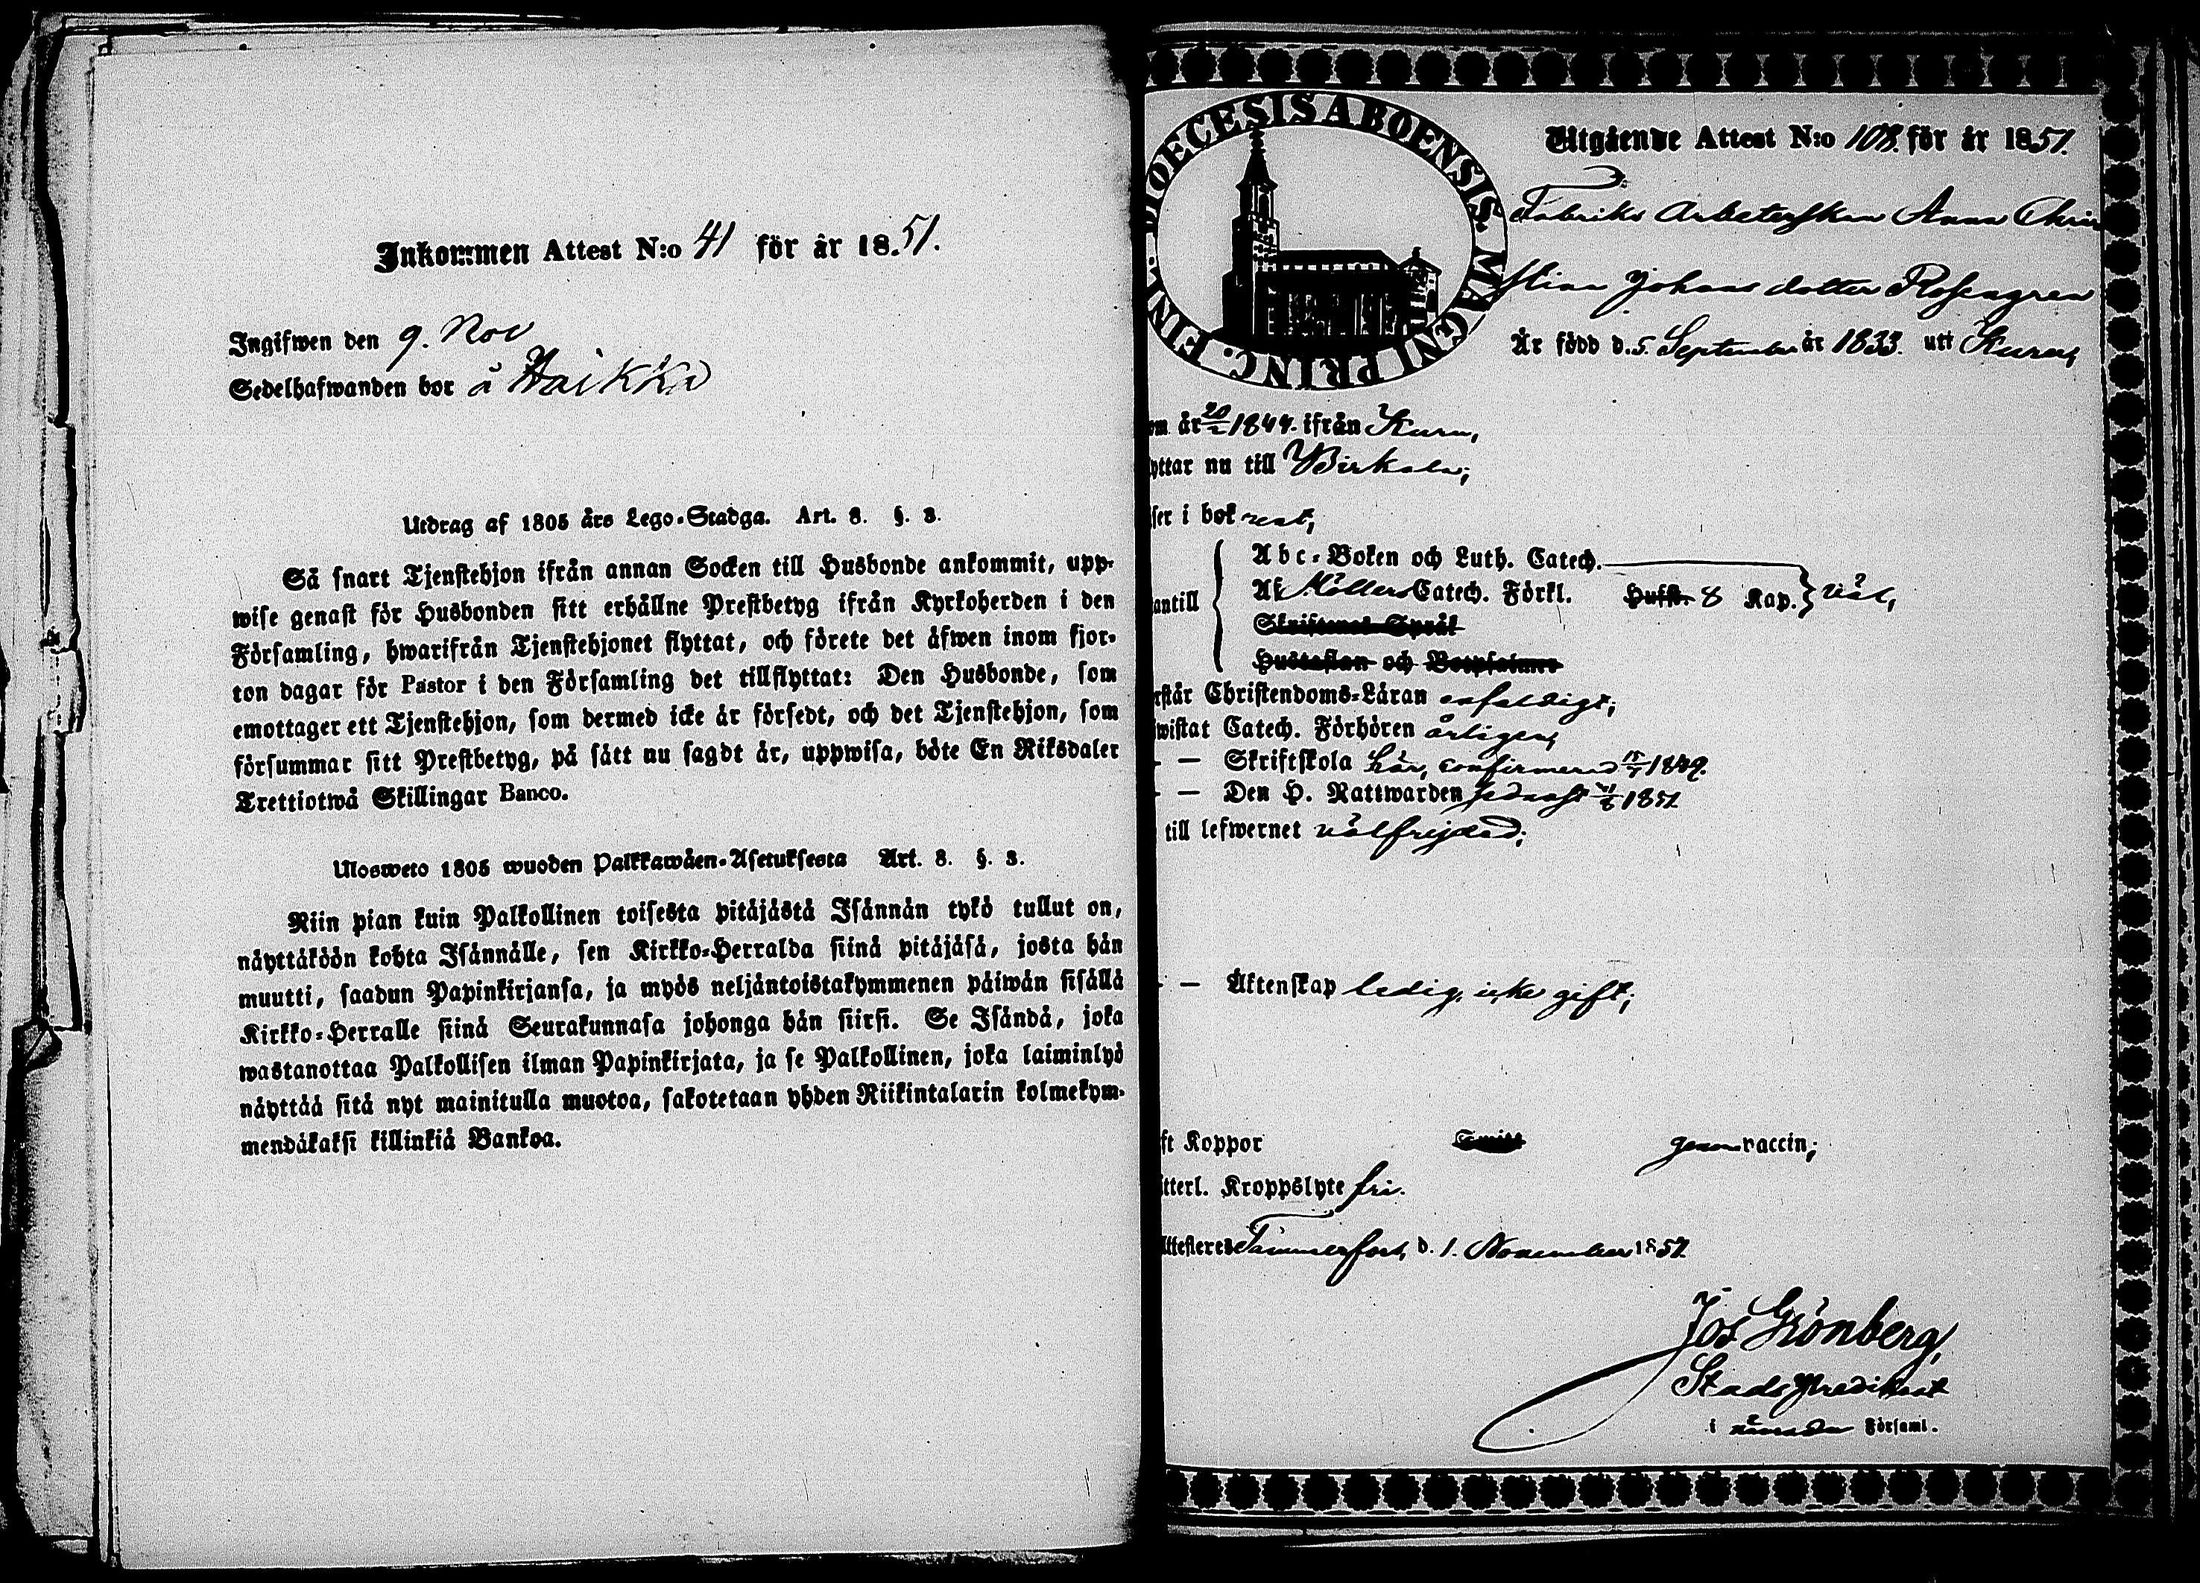 Inkommen Attest N:o 41 för år 1851.
Ingifwen den 9. Nov
Sedelhafwanden bor å Haikka
Utdrag af 1805 års Lego-Stadga. Art. 8. §. 3.
Så snart Tjenstehjon ifrån annan Socken till Husbonde ankommit, upp-
wise genast för Husbonden sitt erhållne Prestbetyg ifrån Kyrkoherden i den
Församling, hwarifrån Tjenstehjonet flyttat, och förete det äfwen inom fjor-
ton dagar för Pastor i den Församling det tillflyttat: Den Husbonde, som
emottager ett Tjenstehjon, som dermed icke är försedt, och det Tjenstehjon, som
försummar sitt Prestbetyg, på sätt nu sagdt är, uppwisa, böte En Riksdaler
Trettiotwå Skillingar Banco.
Ulosweto 1805 wuoden Palkkawäen-Asetuksesta Art. 8. §. 3.
Niin pian kuin Palkollinen toisesta pitäjästä Isännän tykö tullut on,
näyttäköön kohta Isännälle, sen Kirkko-Herralda siinä pitäjäsä, josta hän
muutti, saadun Papinkirjansa, ja myös neljäntoistakymmenen päiwän sisällä
Kirkko-Herralle siinä Seurakunnasa johonga hän siirsi. Se Isändä, joka
wastanottaa Palkollisen ilman Papinkirjata, ja se Palkollinen, joka laiminlyö
näyttää sitä nyt mainitulla muotoa, sakotetaan yhden Riikintalarin kolmekym-
mendäkaksi killinkiä Bankoa.
FINL. DIOECESIS ABOENSIS MAGNI PRINC.
Utgående Attest N:o 108. för år 1851.
Fabriks Arbeterskan Anna Chri
stina Johansdotter Rosengren
Är född d. 5. September år 1833. utt Kuru,
om år 20/2 1844. ifrån Kuru,
yttar nu till Birkala;
ser i bok rent,
antill
Abc-Boken och Luth. Catech.
Af Möllers Catech. Förkl. Hufst. 8 Kap. väl,
Skriftenes Språk
Hustaflan och Botpsalmer
rstår Christendoms-Läran enfaldigt;
wistat Catech. Förhören årligen,
— — Skriftskola här, confirmerad 1849.
— — Den H. Nattwarden sednast 1851
till lefwernet välfrejdad;
— — Äktenskap ledig, icke gift;
ft Koppor Smitt genom vaccin;
tterl. Kroppslyte fri.
ttesteres Tammerfors, d. 1. November 1851
Jos Grönberg,
Stads Predikant
i nämnda Församl.